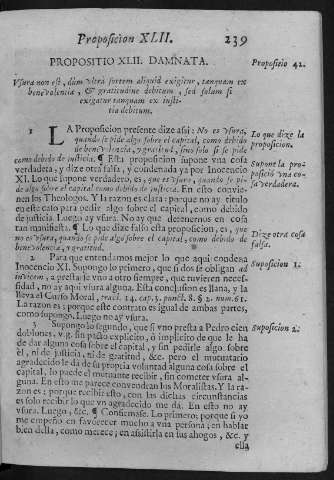 Proposicion XLII. 239
PROPOSITIO XLII. DAMNATA.
Propositio 42.
Vsura non est, dùm vltrà sortem aliquid exigitur, tanquam ex
benevolentia, & gratitudine debitum, sed solum si
exigatur tanquam ex iusti-
tia debitum.
1 LA Proposicion presente dize assi: No es vsura,
quando se pide algo sobre el capital, como debido
de benevolencia, y gratitud, sino solo si se pide
como debido de justicia. ¶ Esta proposicion supone vna cosa
verdadera, y dize otra falsa, y condenada ya por Inocencio
XI. Lo que supone verdadero, es, que es vsura, quando se pi-
de algo sobre el capital como debido de justicia. En esto convie-
nen los Theologos. Y la razon es clara: porque no ay titulo
en este caso para pedir algo sobre el capital, como debido
de justicia. Luego ay vsura. No ay que detenernos en cosa
tan manifiesta. ¶ Lo que dize falso esta proposicion, es, que
no es vsura, quando se pide algo sobre el capital, como debido de
benevolencia, y gratitud.
Lo que dize la
proposicion.
Supone la pro-
posiciō vna co-
sa verdadera.
Dize otra cosa
falsa.
2 Para que entendamos mejor lo que aqui condena
Inocencio XI. Supongo lo primero, que si dos se obligan ad
invicem, a prestarse vno a otro siempre, que tuvieren neces-
sidad, no ay aqui vsura alguna. Esta conclusion es llana, y la
lleva el Curso Moral, tract. 14. cap. 3. punct. 8. § 2. num. 61.
La razon es: porque este contrato es igual de ambas partes,
como supongo. Luego no ay vsura.
Suposicion 1.
3 Supongo lo segundo, que si vno presta a Pedro cien
doblones, v. g. sin pacto explicito, ò implicito de que le ha
de dar alguna cosa sobre el capital, y sin pedirle algo sobre
èl, ni de justicia, ni de gratitud, &c. pero el mutuatario
agradecido le dà de su propria voluntad alguna cosa sobre el
capital, lo puede el mutuante recibir, sin cometer vsura al-
guna. En esto me parece convendran los Moralistas. Y la ra-
zon es: porque recibir esto, con las dichas circunstancias
es solo recibir lo que vn agradecido me dà. En esto no ay
vsura. Luego, &c. ¶ Confirmase. Lo primero; porque si yo
me empeño en favorecer mucho a vna persona; en hablar
bien della, como merece; en assistirla en sus ahogos, &c. y
Suposicion 2.
ella